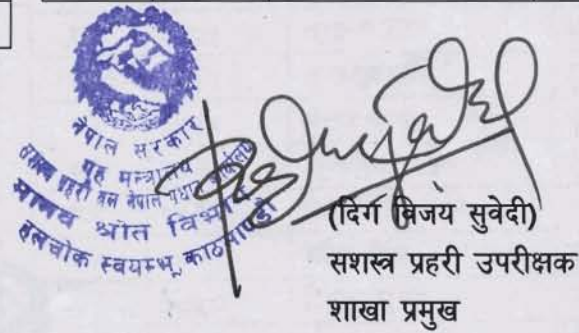 नेपाल सरकार
गृह मन्त्रालय
सशस्त्र प्रहरी बल नेपाल प्रधान कार्यालय
मानव श्रोत विभाग
हलचोक स्वयम्भू, काठमाण्डौ
(दिग विजय सुवेदी)
सशस्त्र प्रहरी उपरीक्षक
शाखा प्रमुख